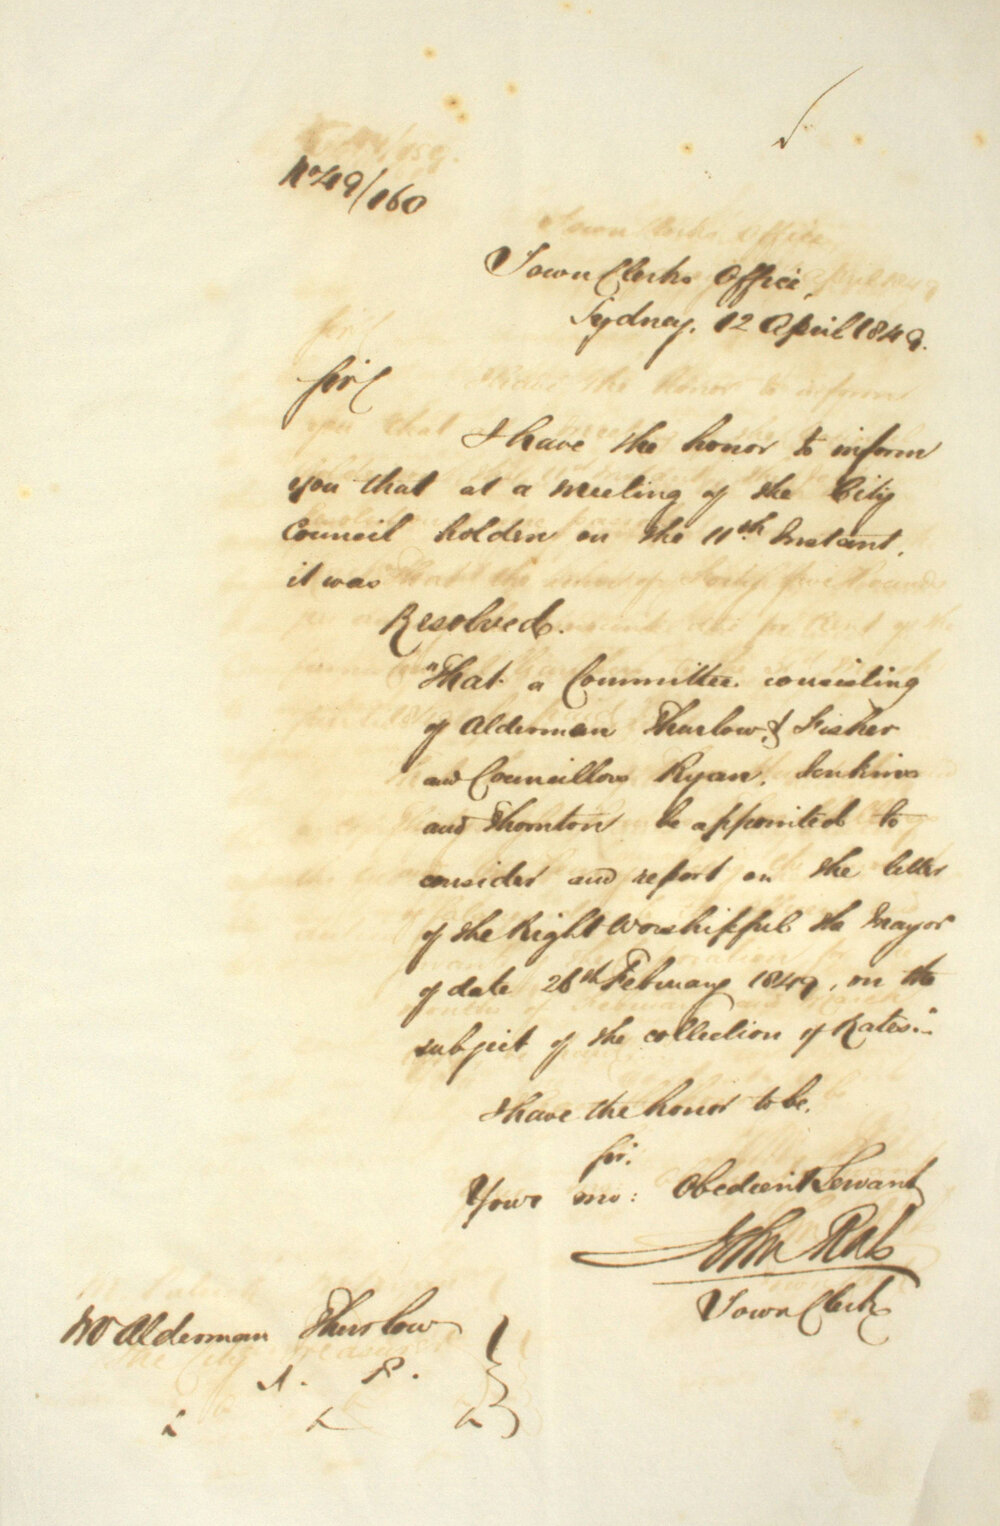 No 49/160
Town Clerks Office,
Sydney. 12 April 1849.
Sir
I have the honor to inform
you that at a meeting of the City
Council holden on the 11th Instant,
it was
Resolved.
"That a Committee consisting
of Alderman Thurlow & Fisher
and Councillors Ryan, Jenkins
and Thornton be appointed to
consider and report on the letter
of the Right Worshipful the Mayor
of date 26th February 1849, on the
subject of the collection of Rates."
I have the honor to be,
Sir,
Your mo: Obedient Servant
John Rae
Town Clerk
Mr Alderman Thurlow